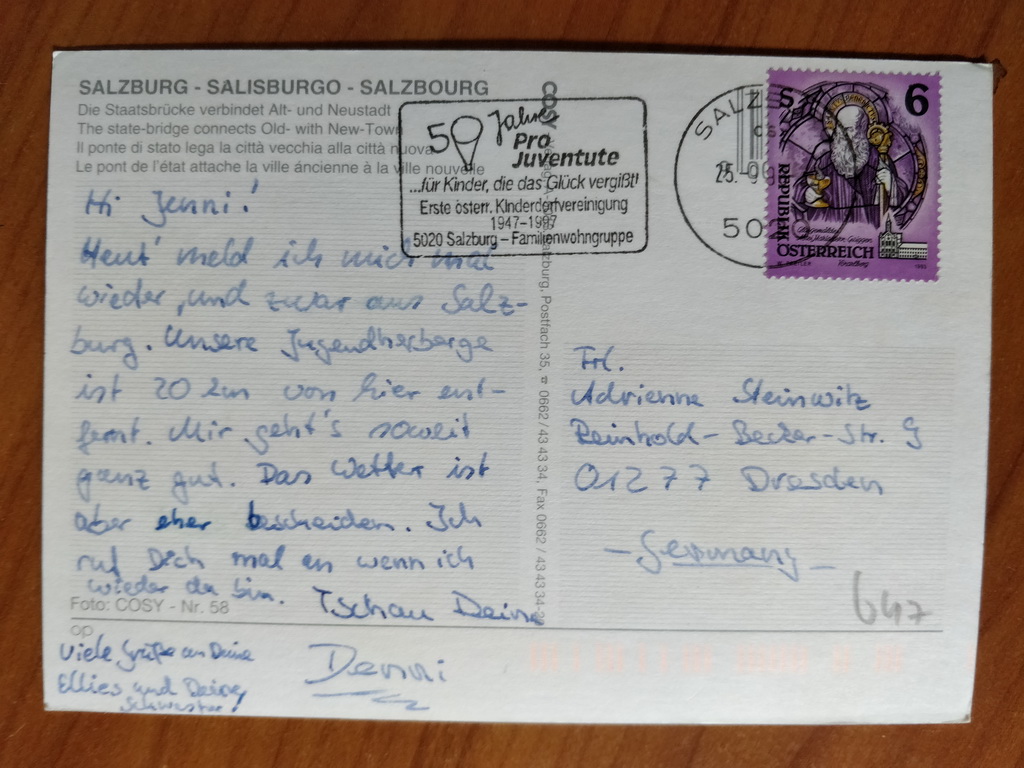 SALZBURG - SALISBURGO - SALZBOURG
Die Staatsbrücke verbindet Alt- und Neustadt
The state-bridge connects Old- with New-Town
Il ponte di stato lega la città vecchia alla città nuova
Le pont de l'état attache la ville áncienne à la ville nouvelle
Hi Jenni!
Heut' meld ich mich mal
wieder, und zwar aus Salz-
burg. Unsere Jugendherberge
ist 20 km von hier ent-
fernt. Mir geht's soweit
ganz gut. Das Wetter ist
aber eher bescheiden. Ich
ruf Dich mal an wenn ich
wieder da bin. Tschau Deine
Foto: COSY - Nr. 58
op
Viele Grüße an Deine
Ellies und Deine
Schwester!
Danni
50 Jahre
Pro
Juventute
...für Kinder, die das Glück vergißt!
Erste österr. Kinderdorfvereinigung
1947-1997
5020 Salzburg - Familienwohngruppe
COSY
Salzburg, Postfach 35, ☎ 0662/43 43 34, Fax 0662/43 43 34-2
SALZ
25. 9
50
6
REPUBLIK
ÖSTERREICH
Frl.
Adrienne Steinwitz
Reinhold-Becker-Str. 9
01277 Dresden
- Germany -
647